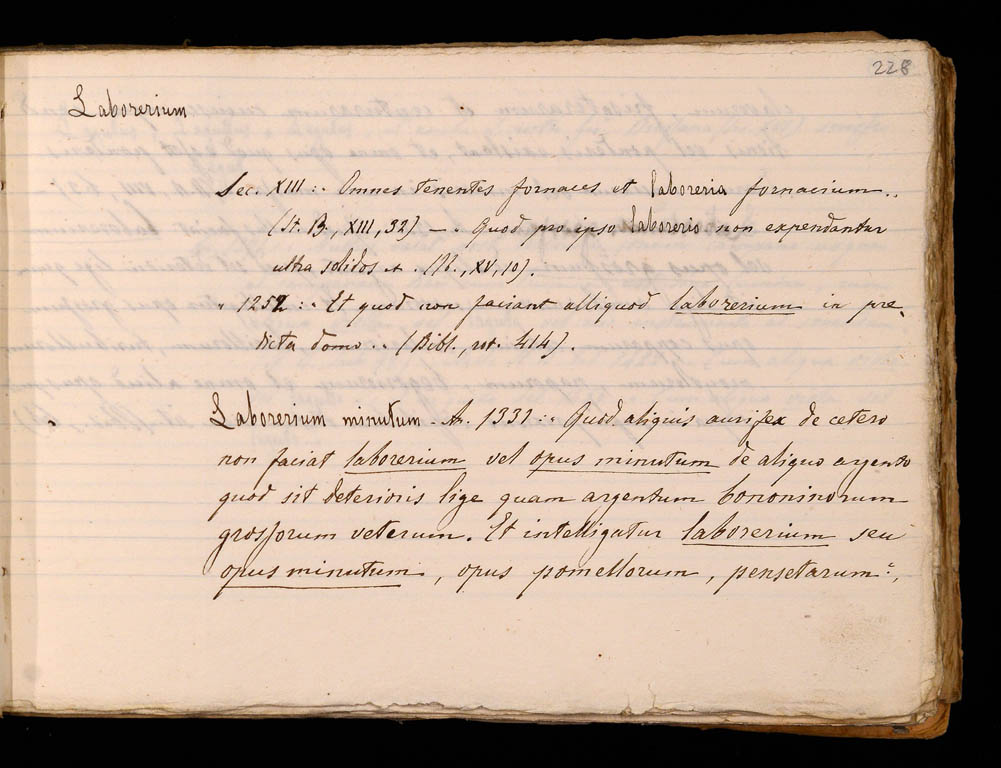 228
Laborerium
Sec. XIII :. Omnes tenentes fornaces et laboreria fornacium..
(St. B., XIII, 32) — . Quod pro ipso laborerio non expendantur
ultra solidos . (Ib., XV, 10).
" 1252 : . Et quod non faciant alliquod laborerium in pre-
dicta domo . . (Bibl., rot. 414).
Laborerium minutum . A. 1331 :. Quod aliquis aurifex de cetero
non faciat laborerium vel opus minutum de aliquo argento
quod sit deterioris lige quam argentum bononinorum
grossorum veterum. Et intelligatur laborerium seu
opus minutum, opus pomellorum, pensetarum,